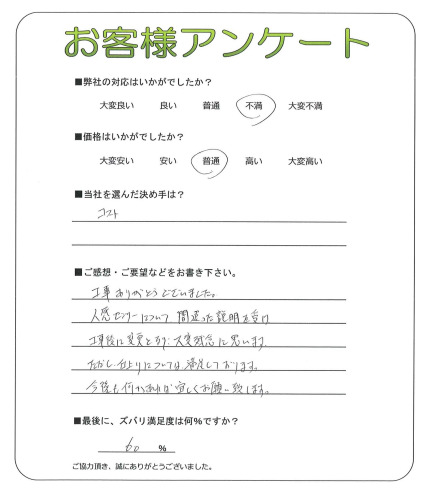 お客様アンケート
■弊社の対応はいかがでしたか？
大変良い 良い 普通 不満 大変不満
■価格はいかがでしたか？
大変安い 安い 普通 高い 大変高い
■当社を選んだ決め手は？
コスト
■ご感想・ご要望などをお書き下さい。
工事ありがとうございました。
人感センサーについて 間違った説明を受け
工事後に変更となり、大変残念に思います。
ただし、仕上りについては満足しております。
今後も何かあれば宜しくお願い致します。
■最後に、ズバリ満足度は何%ですか？
60 %
ご協力頂き、誠にありがとうございました。